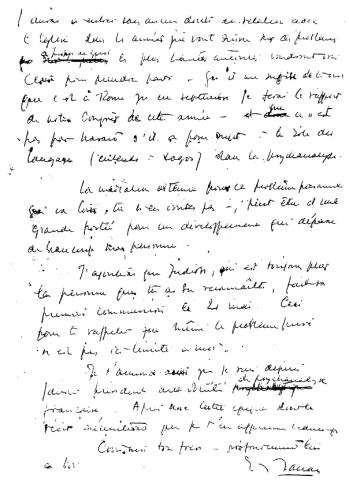 j'aurai à entrer sans aucun doute en relation avec
l'Église dans les années qui vont suivre sur des problèmes
à propos de quoi les plus hautes autorités voudront voir
clair pour prendre parti. Qu'il me suffise de te dire
que c'est à Rome qu'en septembre je ferai le rapport
de notre Congrès de cette année – et que ce n'est
pas par hasard s'il a pour sujet : le rôle du
langage (j'entends : Logos) dans la psychanalyse.
La médiation obtenue pour ce problème personnel
qui va loin, tu n'en doutes pas –, peut être d'une
grande portée pour un développement qui dépasse
de beaucoup ma personne.
J'ajouterai que Judith, qui est toujours plus
la personne que tu as su reconnaître, fait sa
première communion le 21 mai. Ceci
pour te rappeler que même le problème privé
n'est pas ici limité à moi.
Je t'annonce aussi que je suis depuis
janvier président de la Société de psychanalyse
française. Après une lutte épique dont le
récit m'
Confirmé ton frère –
à toi